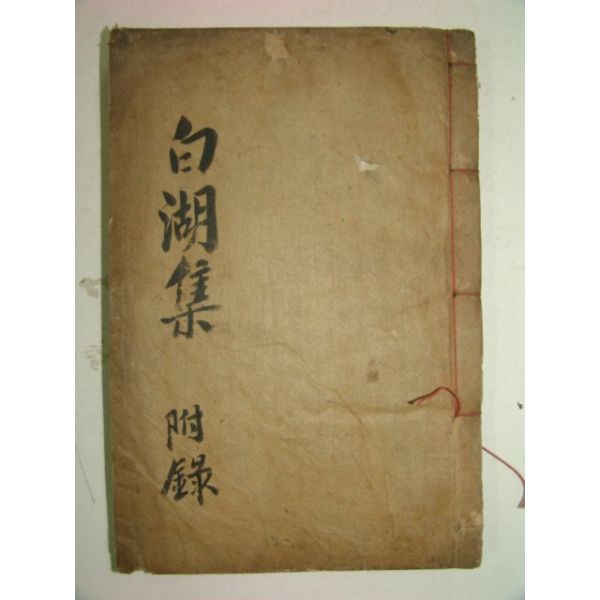 白湖集
附錄